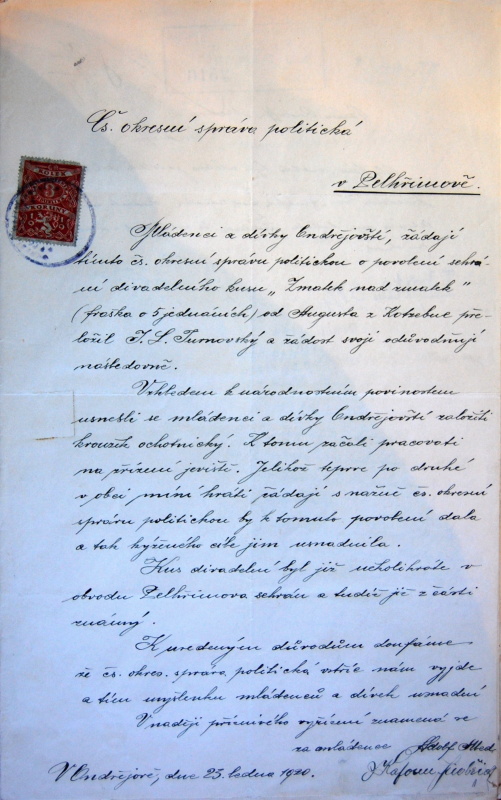 Čs. okresní správa politická
v Pelhřimově.
KOLEK
3
KORUNY
1919
Mládenci a dívky Ondřejovští, žádají
tímto čs. okresní správu politickou o povolení sehrá
ní divadelního kusu „Zmatek nad zmatek"
(fraška o 5 jednáních) od Augusta z Kotzebue pře
ložil J. L. Turnovský a žádost svojí odůvodňují
následovně.
Vzhledem k národnostním povinostem
usnesli se mládenci a dívky Ondřejovští založiti
kroužek ochotnický. K tomu začali pracovati
na zřízení jeviště. Jelikož teprve po druhé
v obci míní hráti žádají s nažně čs. okresní
správu politickou by k tomuto povolení dala
a tak kýženého cíle jim usnadnila.
Kus divadelní byl již několikráte v
obvodu Pelhřimova sehrán a tudíž již z části
známý.
K uvedeným důvodům doufáme
že čs. okres. správa politická vstříc nám vyjde
a tím myšlenku mládenců a dívek usnadní
V naději příznivého vyřízení znamená se
za mládence Adolf
V Ondřejově, dne 25. ledna 1920. J.